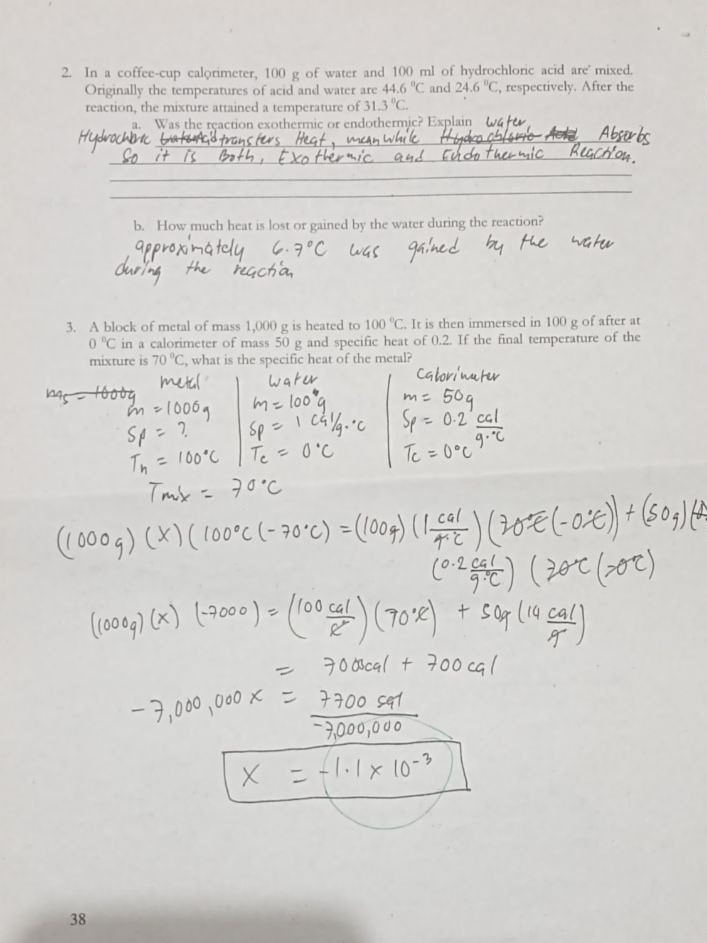 2. In a coffee-cup calorimeter, 100 g of water and 100 ml of hydrochloric acid are mixed.
Originally the temperatures of acid and water are 44.6 °C and 24.6 °C, respectively. After the
reaction, the mixture attained a temperature of 31.3 °C.
a. Was the reaction exothermic or endothermic? Explain water,
Hydrochloric Acid transfers Heat, meanwhile Hydrochloric Acid Absorbs
So it is Both, Exothermic and Endothermic Reaction.
b. How much heat is lost or gained by the water during the reaction?
approximately 6.7°C was gained by the water
during the reaction
3. A block of metal of mass 1,000 g is heated to 100 °C. It is then immersed in 100 g of after at
0 °C in a calorimeter of mass 50 g and specific heat of 0.2. If the final temperature of the
mixture is 70 °C, what is the specific heat of the metal?
metal | water | Calorimater
m = 1000g | m = 100g | m = 50g
Sp = ? | Sp = 1 cal/g·°C | Sp = 0.2 cal/g·°C
Th = 100°C | Tc = 0°C | Tc = 0°C
Tmix = 70°C
(1000g) (x) (100°C (-70°C) = (100g) (1 cal/g·°C) (70°C (-0°C)) + (50g)
(0.2 cal/g·°C) (70°C (-0°C)
(1000g) (x) (-7000) = (100 cal/°C) (70°C) + 50g (14 cal/g)
= 7000cal + 700 cal
-7,000,000 x = 7700 cal
-7,000,000
x = -1.1 x 10-³
38